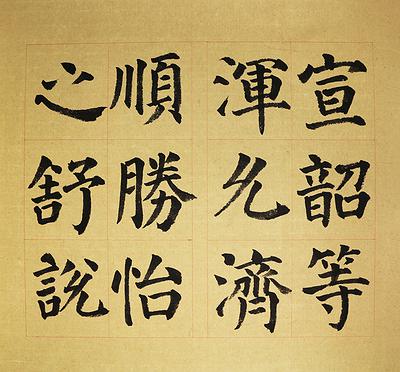 宣韶等
渾允濟
順勝怡
之舒說